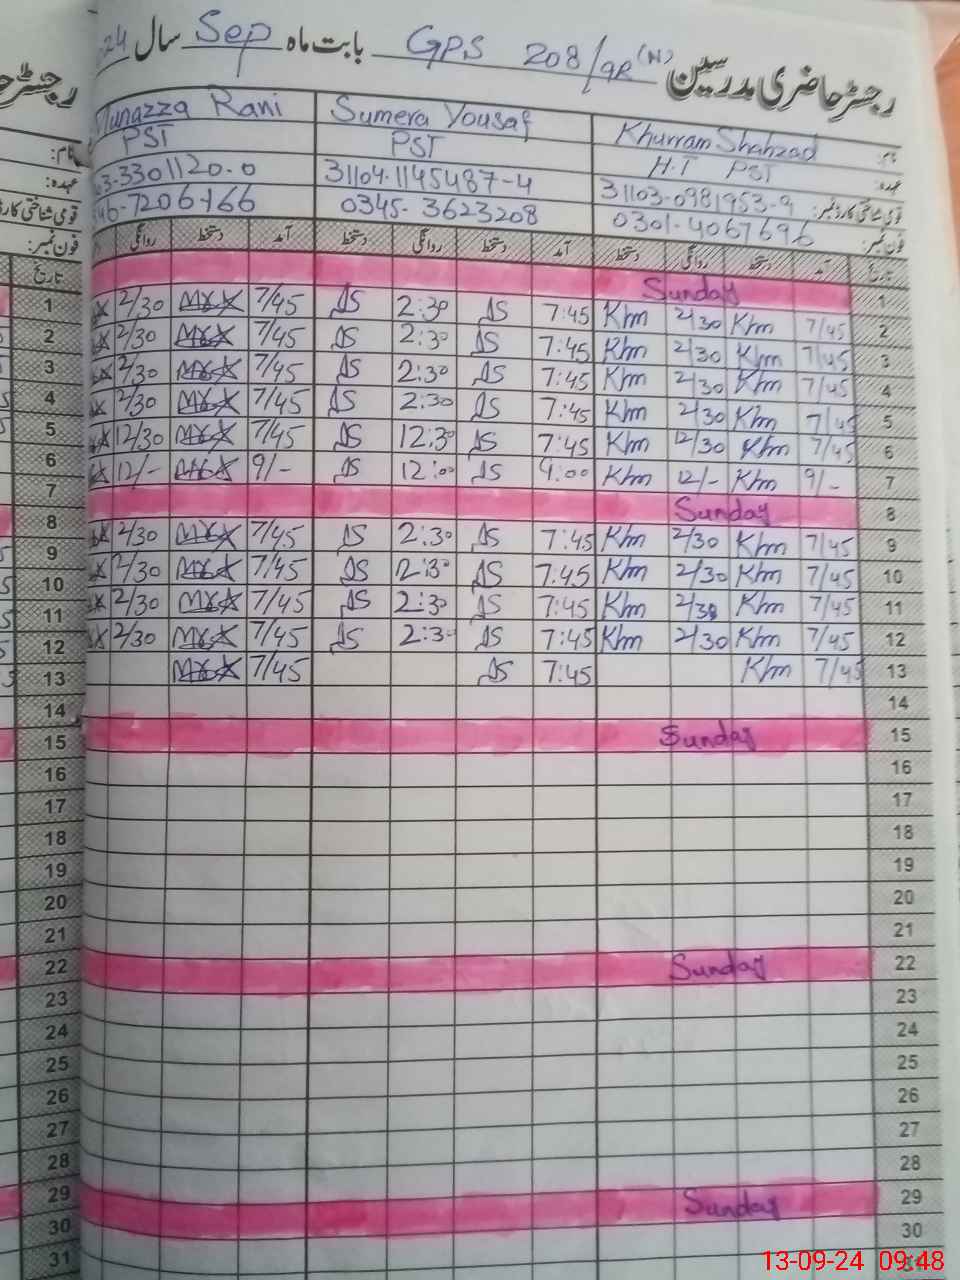 رجسٹر حاضری مدرسین GPS 208/9R (N) بابت ماہ Sep سال 24
نام: Khurram Shahzad Sumera Yousaf Munazza Rani
عہدہ: H.T PST PST PST
قومی شناختی کارڈ نمبر: 31103-0981953-9 31104-1145487-4 3301120-0
فون نمبر: 0301-4067696 0345-3623208 7206166
تاریخ آمد دستخط روانگی دستخط آمد دستخط روانگی دستخط آمد دستخط روانگی تاریخ
1 Sunday 1
2 7/45 Khm 2/30 Khm 7:45 2:30 7/45 2/30 2
3 7/45 Khm 2/30 Khm 7:45 2:30 7/45 2/30 3
4 7/45 Khm 2/30 Khm 7:45 2:30 7/45 2/30 4
5 7/45 Khm 2/30 Khm 7:45 2:30 7/45 2/30 5
6 7/45 Khm 12/30 Khm 7:45 12:30 7/45 12/30 6
7 9/- Khm 12/- Khm 9:00 12:00 9/- 12/- 7
8 Sunday 8
9 7/45 Khm 2/30 Khm 7:45 2:30 7/45 2/30 9
10 7/45 Khm 2/30 Khm 7:45 2:30 7/45 2/30 10
11 7/45 Khm 2/30 Khm 7:45 2:30 7/45 2/30 11
12 7/45 Khm 2/30 Khm 7:45 2:30 7/45 2/30 12
13 7/45 Khm 7:45 7/45 13
14 14
15 Sunday 15
16 16
17 17
18 18
19 19
20 20
21 21
22 Sunday 22
23 23
24 24
25 25
26 26
27 27
28 28
29 Sunday 29
30 30
31 31
13-09-24 09:48